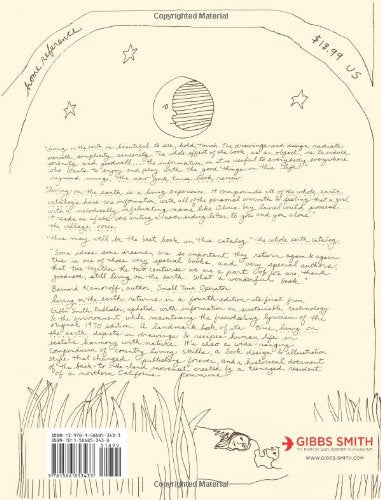 Copyrighted Material
home reference
$18.99 US
"Living on the earth is beautiful to see, hold, touch. The drawings and design radiate
warmth, simplicity, sincerity. The whole effect of the book, as an object, is to induce
serenity and goodwill... the information in it is useful to everybody, everywhere
who wants to enjoy and play with the good things in this life."
raymond mungo, the new york times book review
"Living on the earth is a living experience. It compounds all of the whole earth
catalog's hard core information with all of the personal warmth & feeling that a girl
with a melodically captivating name like alicia bay laurel could possess.
It reads as if she were writing a never ending letter to you and you alone"
the village voice
"This may well be the best book in this catalog." the whole earth catalog
"Some ideas, some dreams are so important they return again & again
this is one of those very special books, and very special authors
that tie together the two centuries we are a part of. for are thanks
goodness still living on the earth. what a wonderful book"
Bernard Kamoroff, author, Small Time Operator
living on the earth returns in a fourth edition, its first from
Gibbs Smith, Publisher, updated with information on sustainable technology
& the environment while maintaining the freewheeling lyricism of the
original 1970 edition. A landmark book of its time, living on
the earth depicts in drawings & recipes human life in
ecstatic harmony with nature. It's also a wide-ranging
compendium of country living skills, a book design & illustration
style that changed publishing forever, and a historical document
of the back-to-the-land movement created by a teenaged resident
of a northern California commune.
ISBN-13: 978-1-58685-343-3
ISBN-10: 1-58685-343-0
51899
9 781586 853433
GIBBS SMITH
TO ENRICH AND INSPIRE HUMANKIND
WWW.GIBBS-SMITH.COM
Copyrighted Material